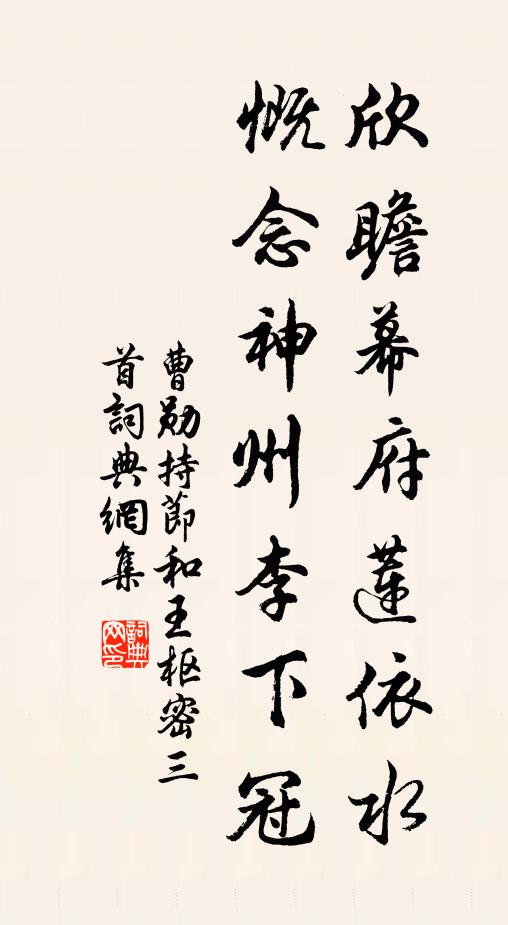 欣瞻幕府蓮依水
慨念神州李下冠
曹勛持節和王樞密三
首詞典網集
詞典网印